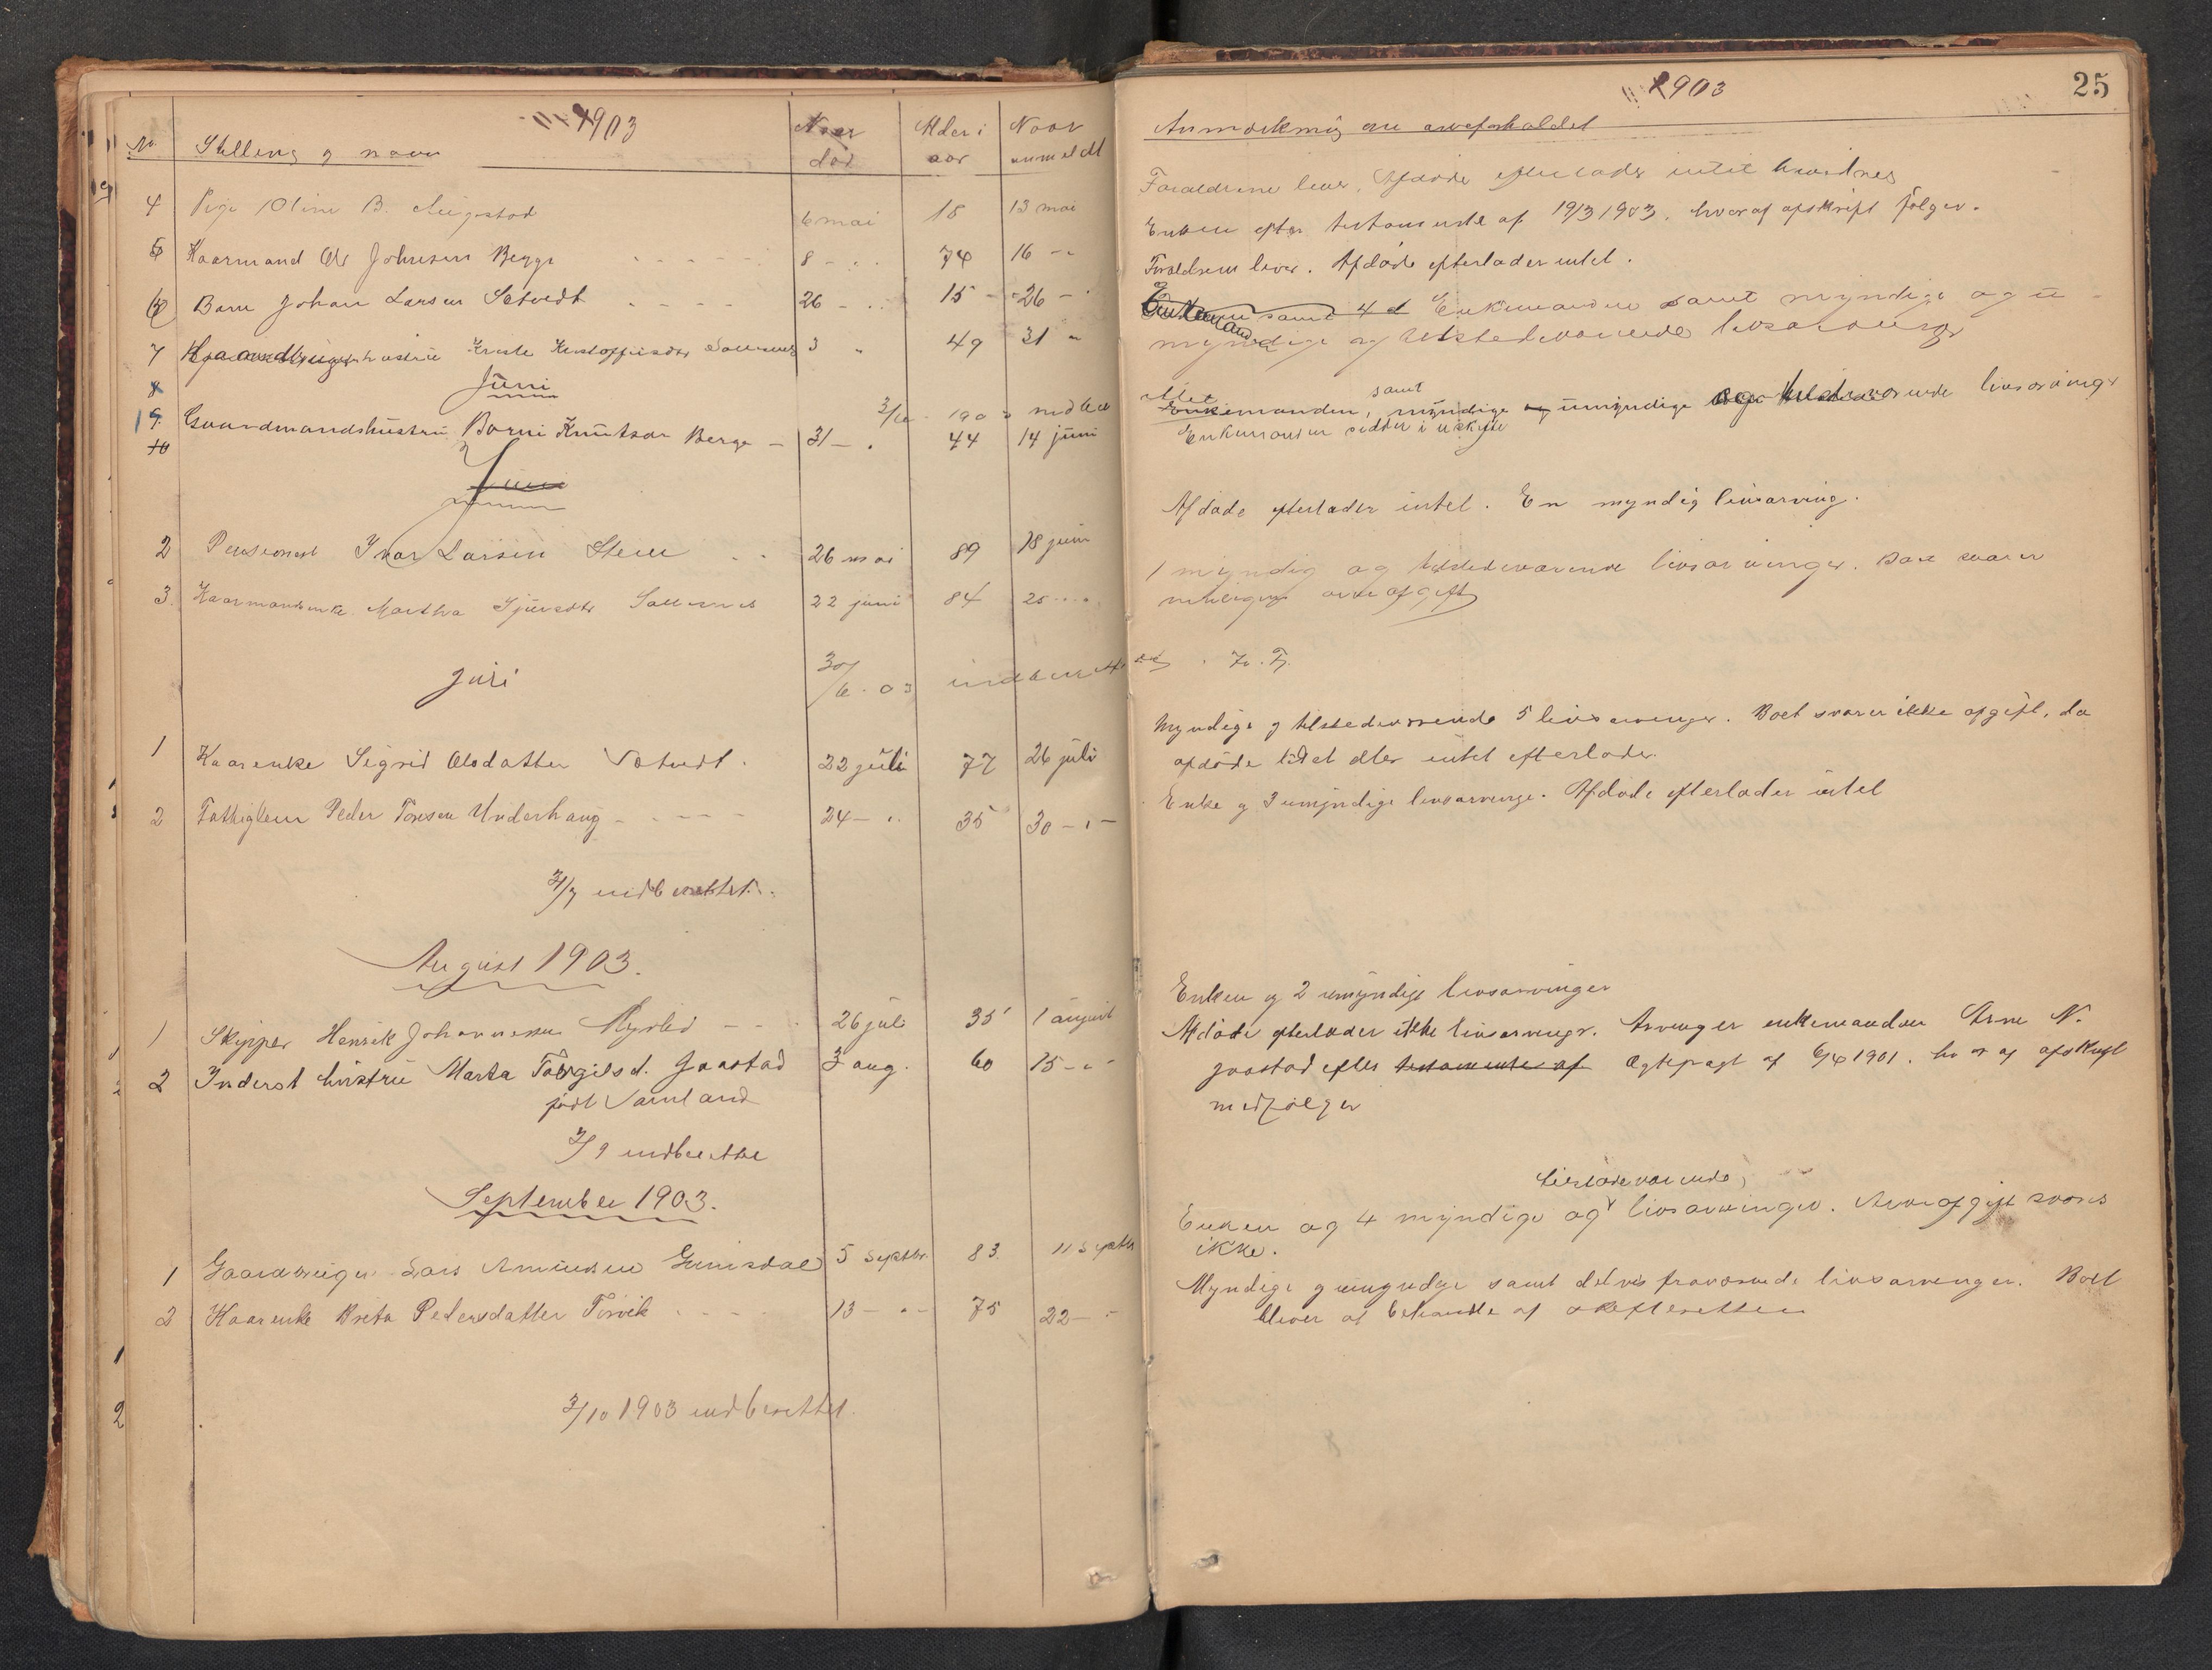 1903
No. Stilling og navn Naar død Alder i aar Naar anmeldt
4 Pige Oline B. Augestad 6 mai 18 13 mai
5 Kaarmand Ole Johnsen Berge 8 - 74 16 -
6 Barn Johan Larsen Sætvedt 26 - 15 - 26 -
7 hustru Kristoffersdtr 3 49 31 "
8 Juni
9. Gaardmandshustru Børni Knutsdr Berge - 31 - 44 14 juni
10
Juni
2 Pensionist Ivar Larsen Steu 26 mai 89 18 juni
3 Kaarmandsenke Martha Sjursdtr 22 juni 84 25
Juli 30/6. 03 indberettet
1 Kaarenke Sigrid Olsdatter Sætvedt. 22 juli 77 26 juli
2 Fattiglem Peder Tøresen Underhaug 24 - 35 30 -
3/7 indberettet.
August 1903.
1 Skipper Henrik Johannessen 26 juli 35 1 august
2 Inderst hustru Marta Torgilsd. Jaastad 3 aug. 60 15 -
født Samland
3/9 indberettet
September 1903.
1 Gaardbruger Lars Amundsen 5 septbr. 83 11 septbr
2 Kaarenke Brita Pedersdatter Torvik 13 - 75 22 -
3/10 1903 indberettet.
1903
25
Anmærkning om arveforholdet
Forældrene lever. Afdøde efterlader intet
Enken efter testamente af 19/3 1903, hvoraf afskrift følger.
Forældrene lever. Afdøde efterlader intet.
samt 4 Enkemanden samt myndige og u-
myndige og tilstedeværende livsarvinger
samt
Enkemanden, myndige og umyndige livsarvinger
Enkemanden sidder i uskifte
Afdøde efterlader intet. En myndig livsarving.
1 myndig og tilstedeværende livsarvinger. Boet svarer
arveafgift
Myndige og tilstedeværende 5 livsarvinger. Boet svarer ikke afgift, da
afdøde lidet eller intet efterlader.
Enke og 3 umyndige livsarvinge. Afdøde efterlader intet
Enken og 2 umyndige livsarvinger
Afdøde efterlader ikke livsarvinger. Arving er enkemanden Arne N.
Jaastad efter testamente af Ægtepagt af 6/4 1901. hvoraf afskrift
medfølger
tilstedeværende
Enken og 4 myndige og livsarvinger. Arveafgift svares
ikke.
Myndige og umyndige samt delvis fraværende livsarvinger. Boet
bliver at behandle af skifteretten